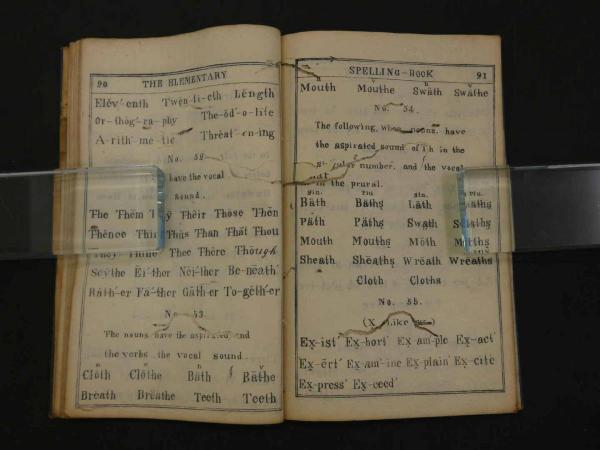 90 THE ELEMENTARY
Elĕv´-enth Twĕn-ti-eth Lĕngth
Or-thŏg´-ra-phy The-ŏd´-o-lite
A-rith´-me-tic Thrĕat´-en-ing
No. 52.
have the vocal
sound.
The Thĕm Thĕir Thōse Thĕn
Thĕnce Thĭs Thŭs Thăn Thăt Thou
Thȳ Thīne Thee Thēre Thōugh
Scȳthe Ēi´-ther Nēi´-ther Be-nēath´
Răth´-er Fä´-ther Găth´-er To-gĕth´-er
No. 53.
The nouns have the aspirated, and
the verbs the vocal sound.
n v n v
Clŏth Clōthe Băth Bāthe
Breath Brēathe Teeth Teeth
SPELLING-BOOK 91
n v n v
Mouth Mouthe Swäth Swāthe
No. 54.
The following, when nouns, have
the aspirated sound of th in the
number, and the vocal
in the prural.
sin. plu. sin. plu.
Băth Băths Lăth
Păth Păths Swath
Mouth Mouths Mŏth
Sheath Shēaths Wrēath Wreaths
Cloth Cloths
No. 55.
(X like gz.)
Ex-ist´ Ex-hort´ Ex-am-ple Ex-act´
Ex-ĕrt´ Ex-am´-ine Ex-plain´ Ex-cite
Ex-press´ Ex-ceed´